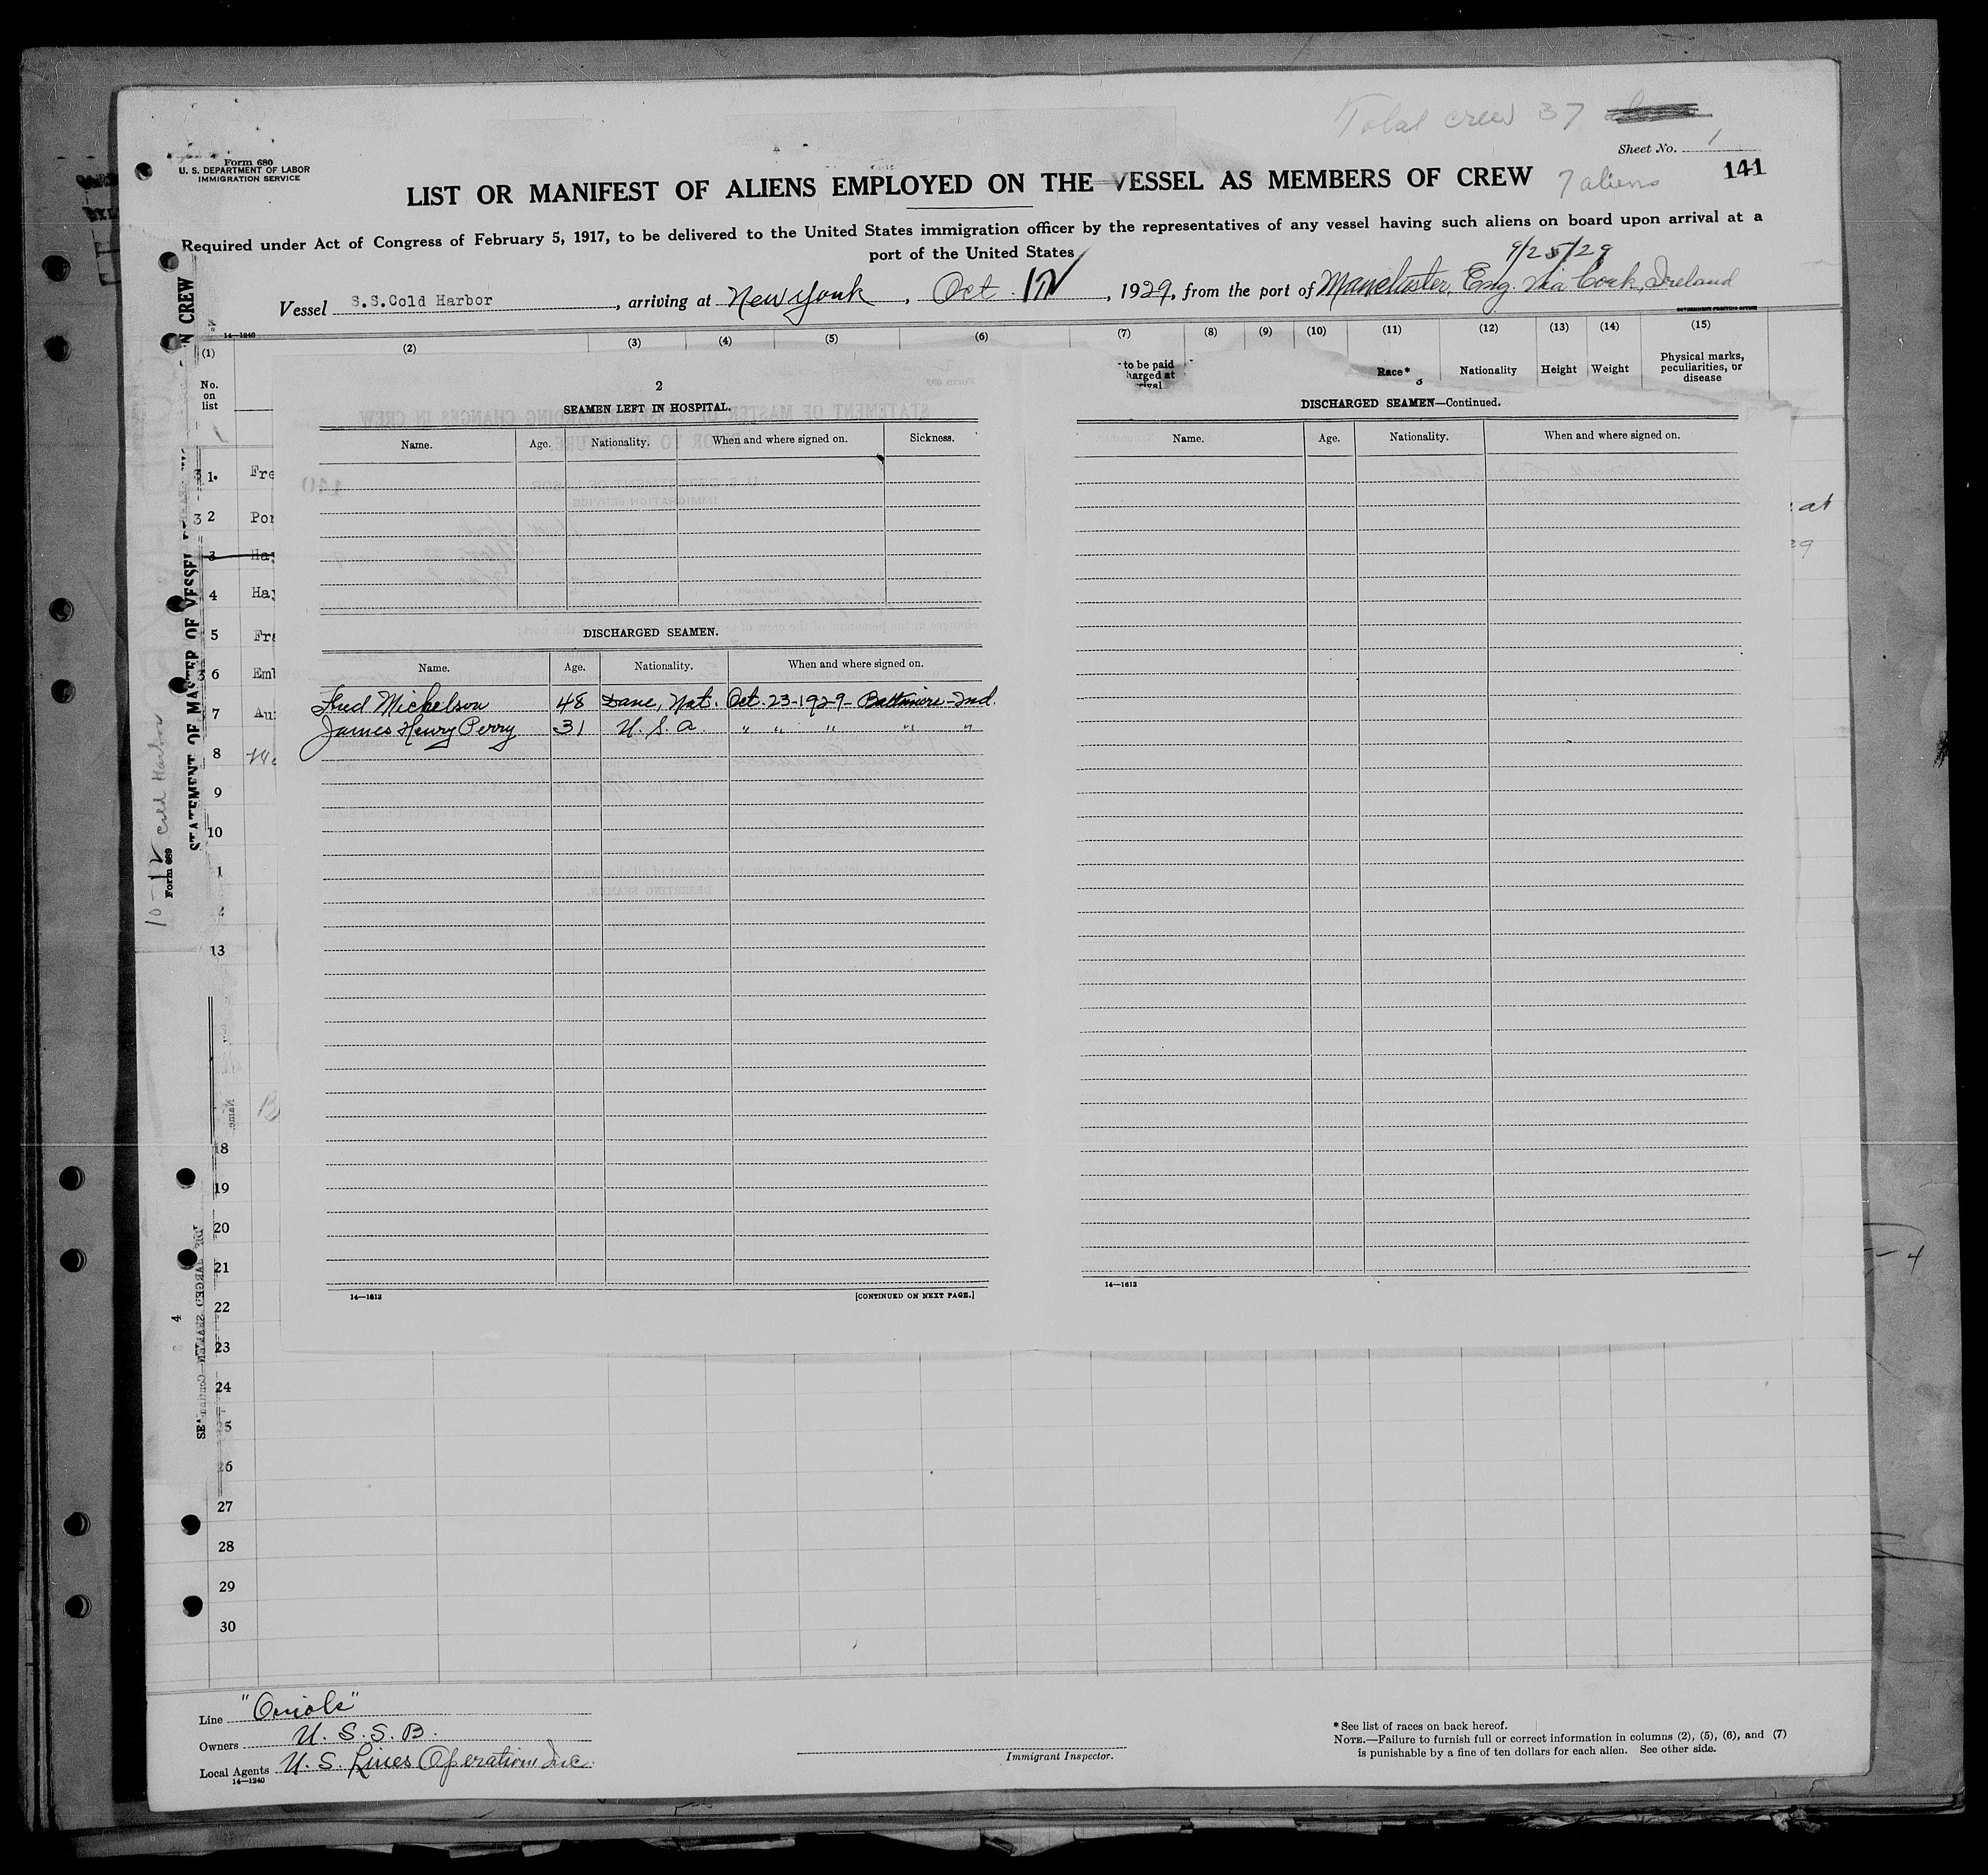 Total crew 37
Form 680
U. S. DEPARTMENT OF LABOR
IMMIGRATION SERVICE
Sheet No. 1
LIST OR MANIFEST OF ALIENS EMPLOYED ON THE VESSEL AS MEMBERS OF CREW 7 aliens 141
Required under Act of Congress of February 5, 1917, to be delivered to the United States immigration officer by the representatives of any vessel having such aliens on board upon arrival at a
port of the United States
9/25/29
Vessel S.S.Cold Harbor, arriving at New York, Oct. , 1929, from the port of Manchester, Eng. via Cork, Ireland
14—1240
(1) (2) (3) (4) (5) (6) (7) (8) (9) (10) (11) (12) (13) (14) (15)
No. on list
to be paid
Race* Nationality Height Weight Physical marks, peculiarities, or disease
2
SEAMEN LEFT IN HOSPITAL.
Name. Age. Nationality. When and where signed on. Sickness.
DISCHARGED SEAMEN.
Name. Age. Nationality. When and where signed on.
Fred Michelson 48 Dane, Nat. Oct. 23-1929- Baltimore-Md.
James Henry Perry 31 U. S. A. " " " " "
14—1613
[CONTINUED ON NEXT PAGE.]
DISCHARGED SEAMEN—Continued.
Name. Age. Nationality. When and where signed on.
14—1613
1 Fre
2 Por
3 Hay
4 Hay
5 Fra
6 Emb
7 Au
8
9
10
13
18
19
20
21
22
23
24
5
26
27
28
29
30
IN CREW
STATEMENT OF MASTER OF VESSEL
Cold Harbor
Form 689
4
Line "Oriole"
Owners U. S. S. B.
Local Agents U. S. Lines Operations Inc.
14—1240
Immigrant Inspector.
*See list of races on back hereof.
NOTE.—Failure to furnish full or correct information in columns (2), (5), (6), and (7)
is punishable by a fine of ten dollars for each alien. See other side.